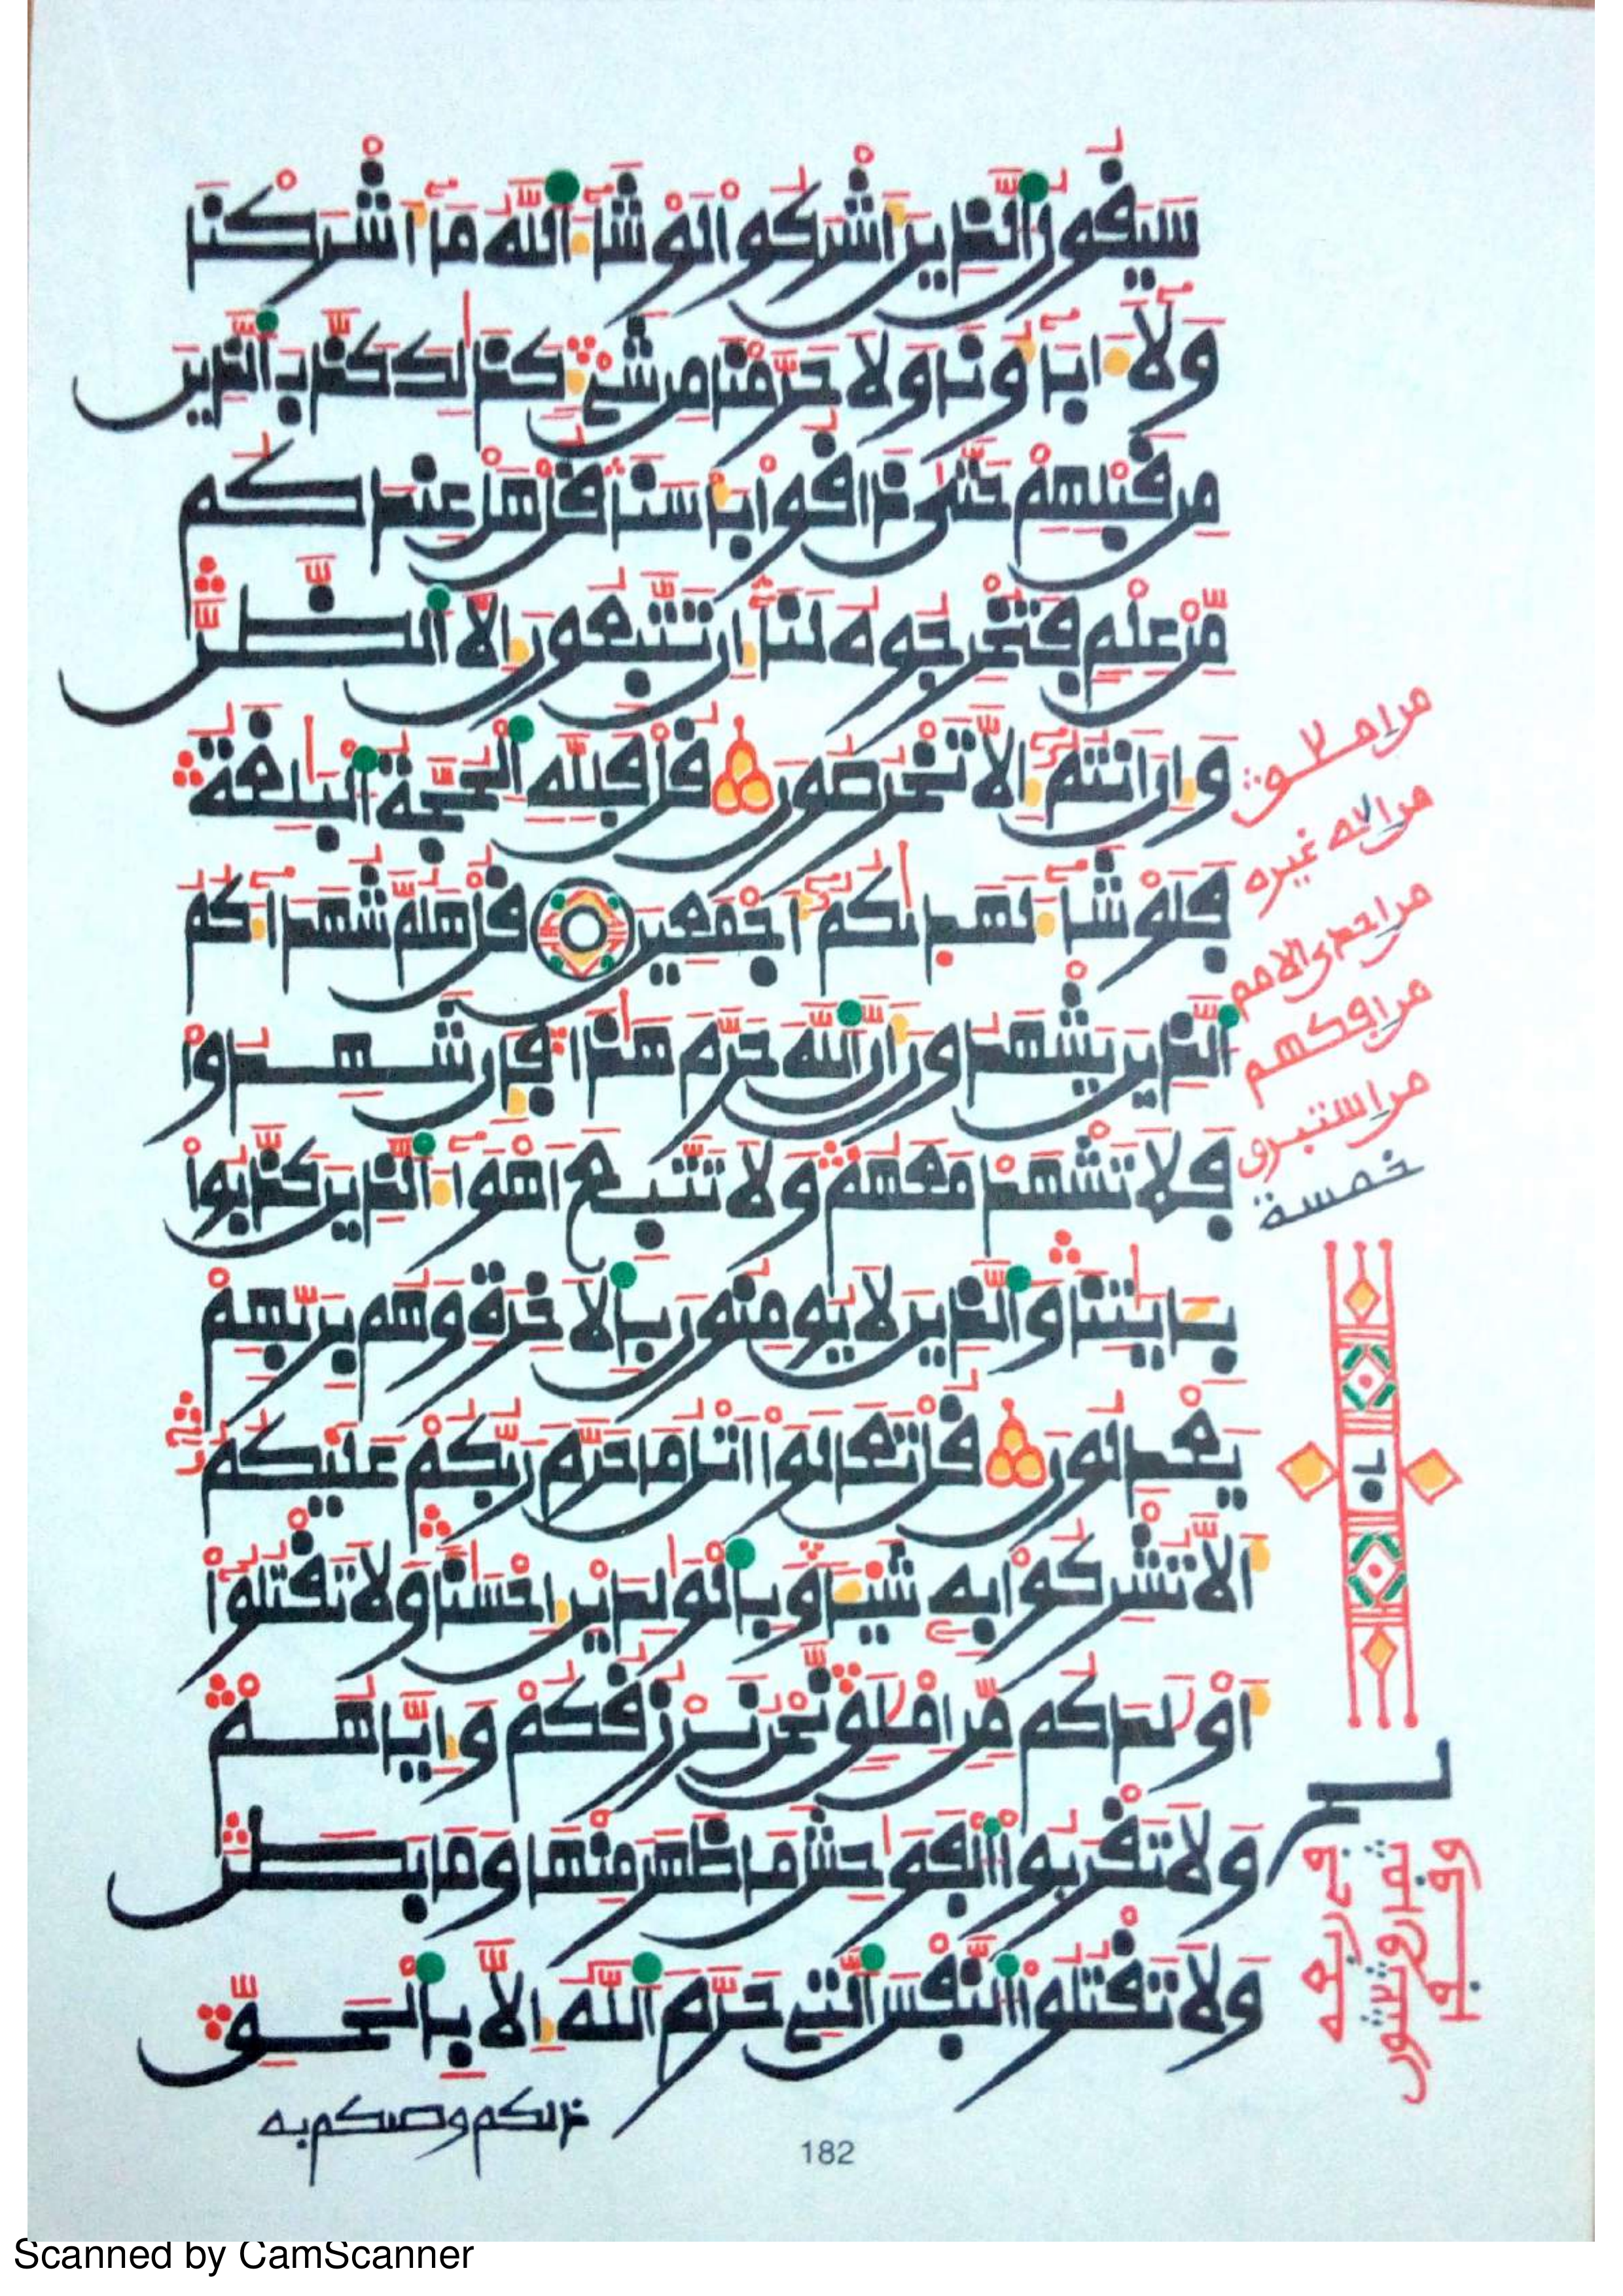 سيقول الذين أشركوا لو شاء الله ما أشركنا
ولا ءاباؤنا ولا حرمنا من شيء كذلك كذب الذين
من قبلهم حتى ذاقوا بأسنا قل هل عندكم
من علم فتخرجوه لنا إن تتبعون إلا الظن
وإن أنتم إلا تخرصون قل فلله الحجة البلغة
فلو شاء لهديكم أجمعين قل هلم شهداءكم
الذين يشهدون أن الله حرم هذا فإن شهدوا
فلا تشهد معهم ولا تتبع أهواء الذين كذبوا
بـٔايتنا والذين لا يومنون بالأخرة وهم بربهم
يعدلون قل تعالوا اتل ما حرم ربكم عليكم
ألا تشركوا به شيئا وبالولدين إحسنا ولا تقتلوا
أولدكم من إملق نحن نرزقكم وإياهم
ولا تقربوا الفوحش ما ظهر منها وما بطن
ولا تقتلوا النفس التي حرم الله إلا بالحق
ذلكم وصيكم به
من املاق
من اله غيره
من احدى الامم
من افكهم
من استبرق
خمسة
182
Scanned by CamScanner